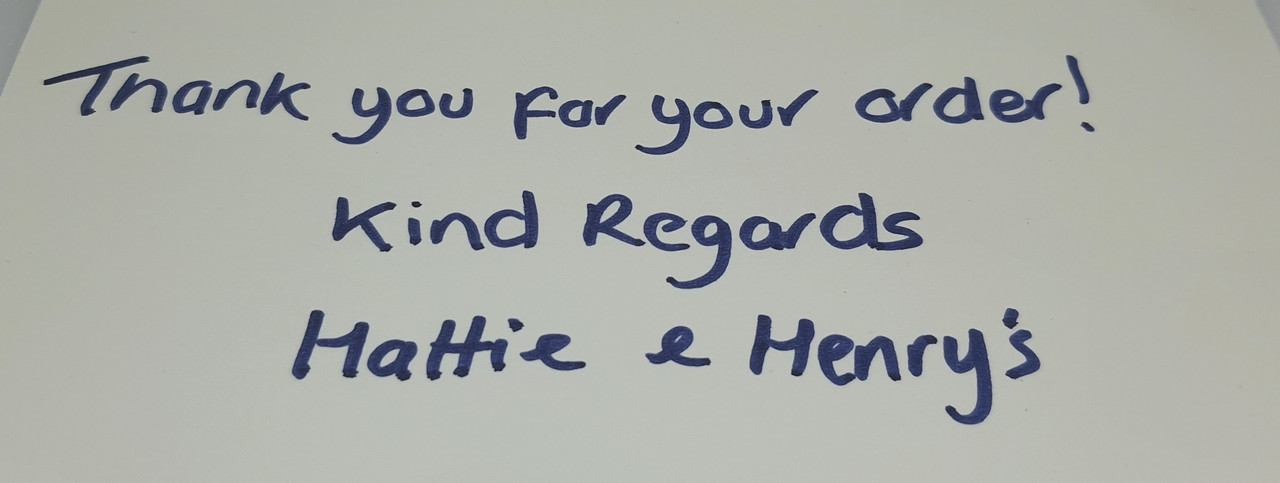 Thank you for your order!
Kind Regards
Hattie e Henry's